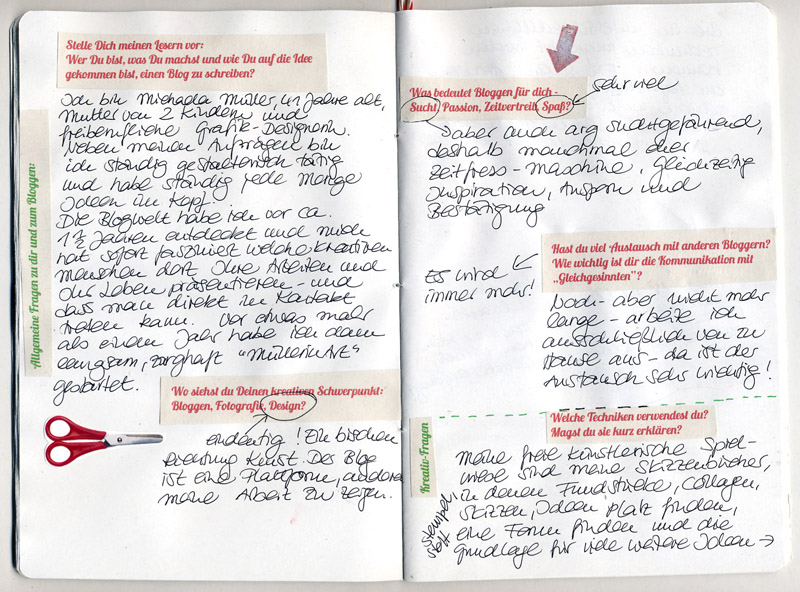 Stelle Dich meinen Lesern vor:
Wer Du bist, was Du machst und wie Du auf die Idee
gekommen bist, einen Blog zu schreiben?
Allgemeine Fragen zu dir und zum Bloggen:
Ich bin Michaela Müller, 41 Jahre alt,
Mutter von 2 Kindern und
freiberufliche Grafik-Designerin.
Neben meinen Aufträgen bin
ich ständig gestalterisch tätig
und habe ständig jede Menge
Ideen im Kopf.
Die Blogwelt habe ich vor ca.
1 ½ Jahren entdeckt und mich
hat sofort fasziniert welche kreativen
Menschen dort Ihre Arbeiten und
Ihr Leben präsentieren - und
dass man direkt in Kontakt
treten kann. Vor etwas mehr
als einem Jahr habe ich dann
langsam, zaghaft "MüllerinArt"
gestartet.
Wo siehst du Deinen kreativen Schwerpunkt:
Bloggen, Fotografik, Design?
eindeutig! Ein bischen
Richtung Kunst. Das Blog
ist eine Plattform, anderen
meine Arbeit zu zeigen.
Was bedeutet Bloggen für dich -
Sucht, Passion, Zeitvertreib, Spaß?
sehr viel
aber auch arg suchtgefährend,
deshalb manchmal eher
Zeitfress-Maschine, gleichzeitig
Inspiration, Ansporn und
Bestätigung
Hast du viel Austausch mit anderen Bloggern?
Wie wichtig ist dir die Kommunikation mit
„Gleichgesinnten"?
Es wird
immer mehr!
Noch - aber nicht mehr
lange - arbeite ich
ausschließlich von zu
Hause aus - da ist der
Austausch sehr wichtig!
Welche Techniken verwendest du?
Magst du sie kurz erklären?
Kreativ-Fragen
Meine freie künstlerische Spiel-
wiese sind meine Skizzenbücher,
in denen Fundstücke, Collagen,
Skizzen, Ideen Platz finden,
eine Form finden und die
Grundlage für viele weitere Ideen →